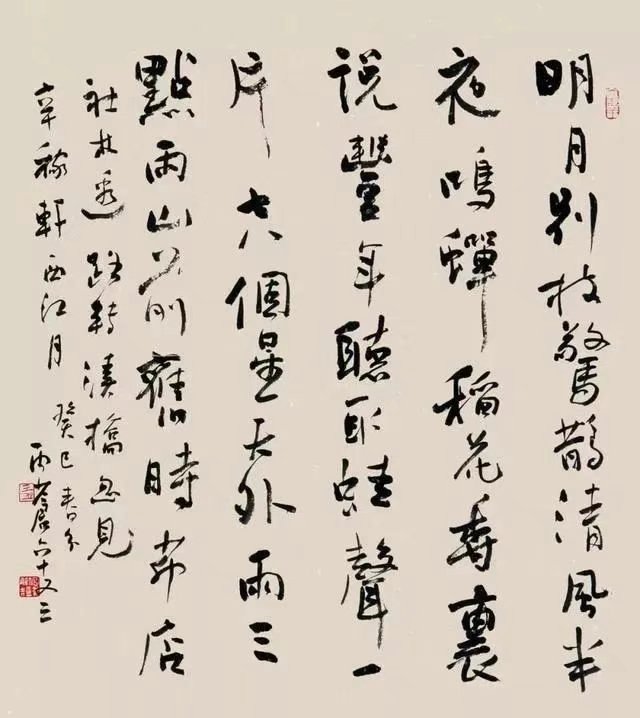 明月别枝驚鵲清風半
夜鳴蟬稻花香裏
説豐年聽取蛙聲一
片七八個星天外兩三
點雨山前舊時茆店
社林邊路轉溪橋忽見
辛稼軒西江月
癸巳春分
六十又三